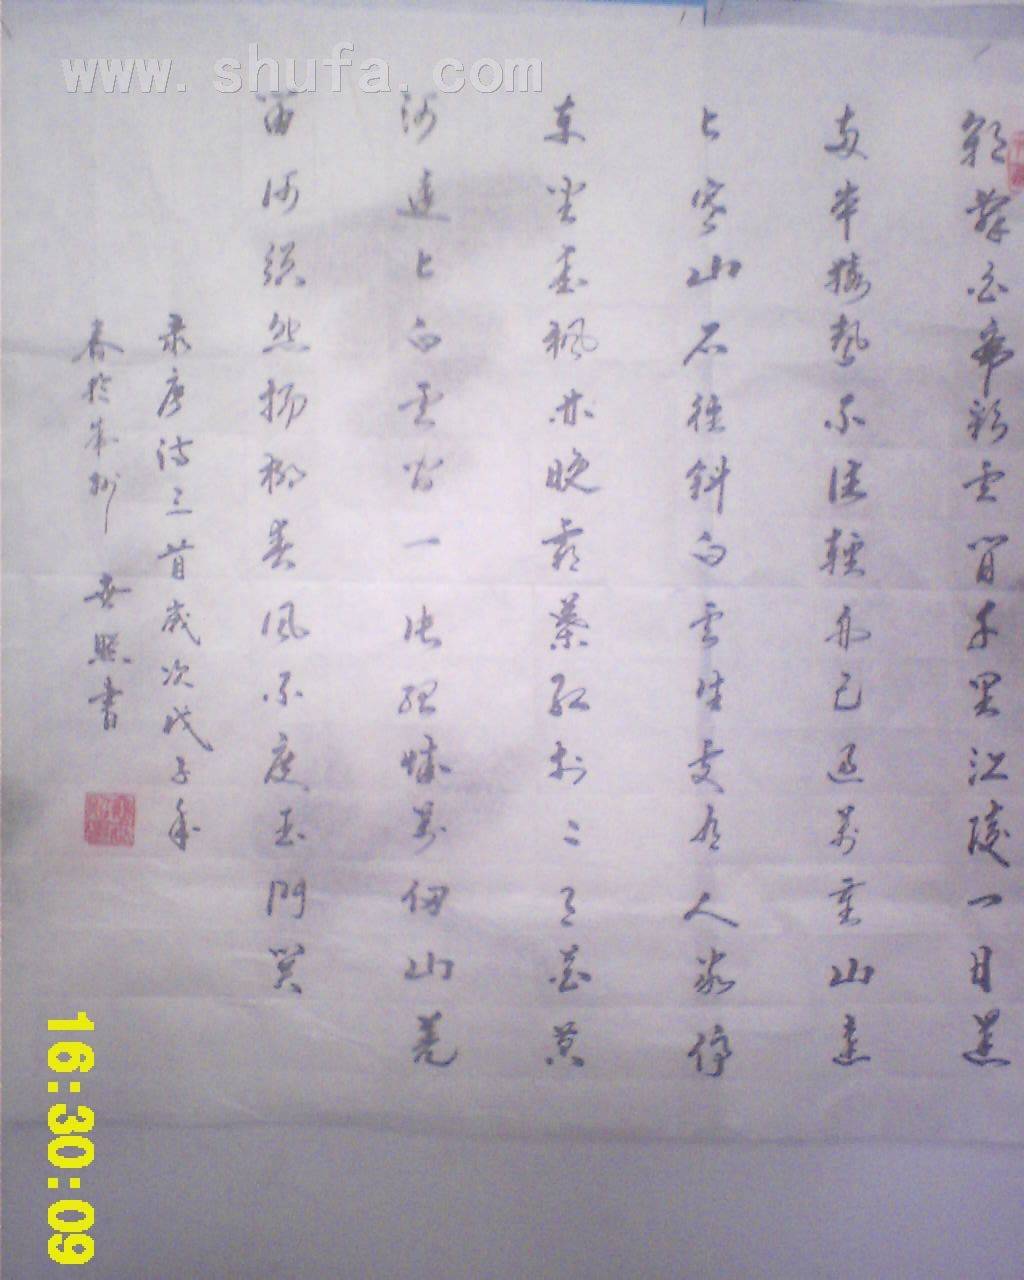 www.shufa.com
朝辞白帝彩云间千里江陵一日还
两岸猿声不住轻舟已过万重山远
上寒山石径斜白云生处有人家停
车坐爱枫林晚霜叶红于二月花黄
河远上白云间一片孤城万仞山羌
笛何须怨杨柳春风不度玉门关
录唐诗三首岁次戊子年
春于
世照书
16:30:09